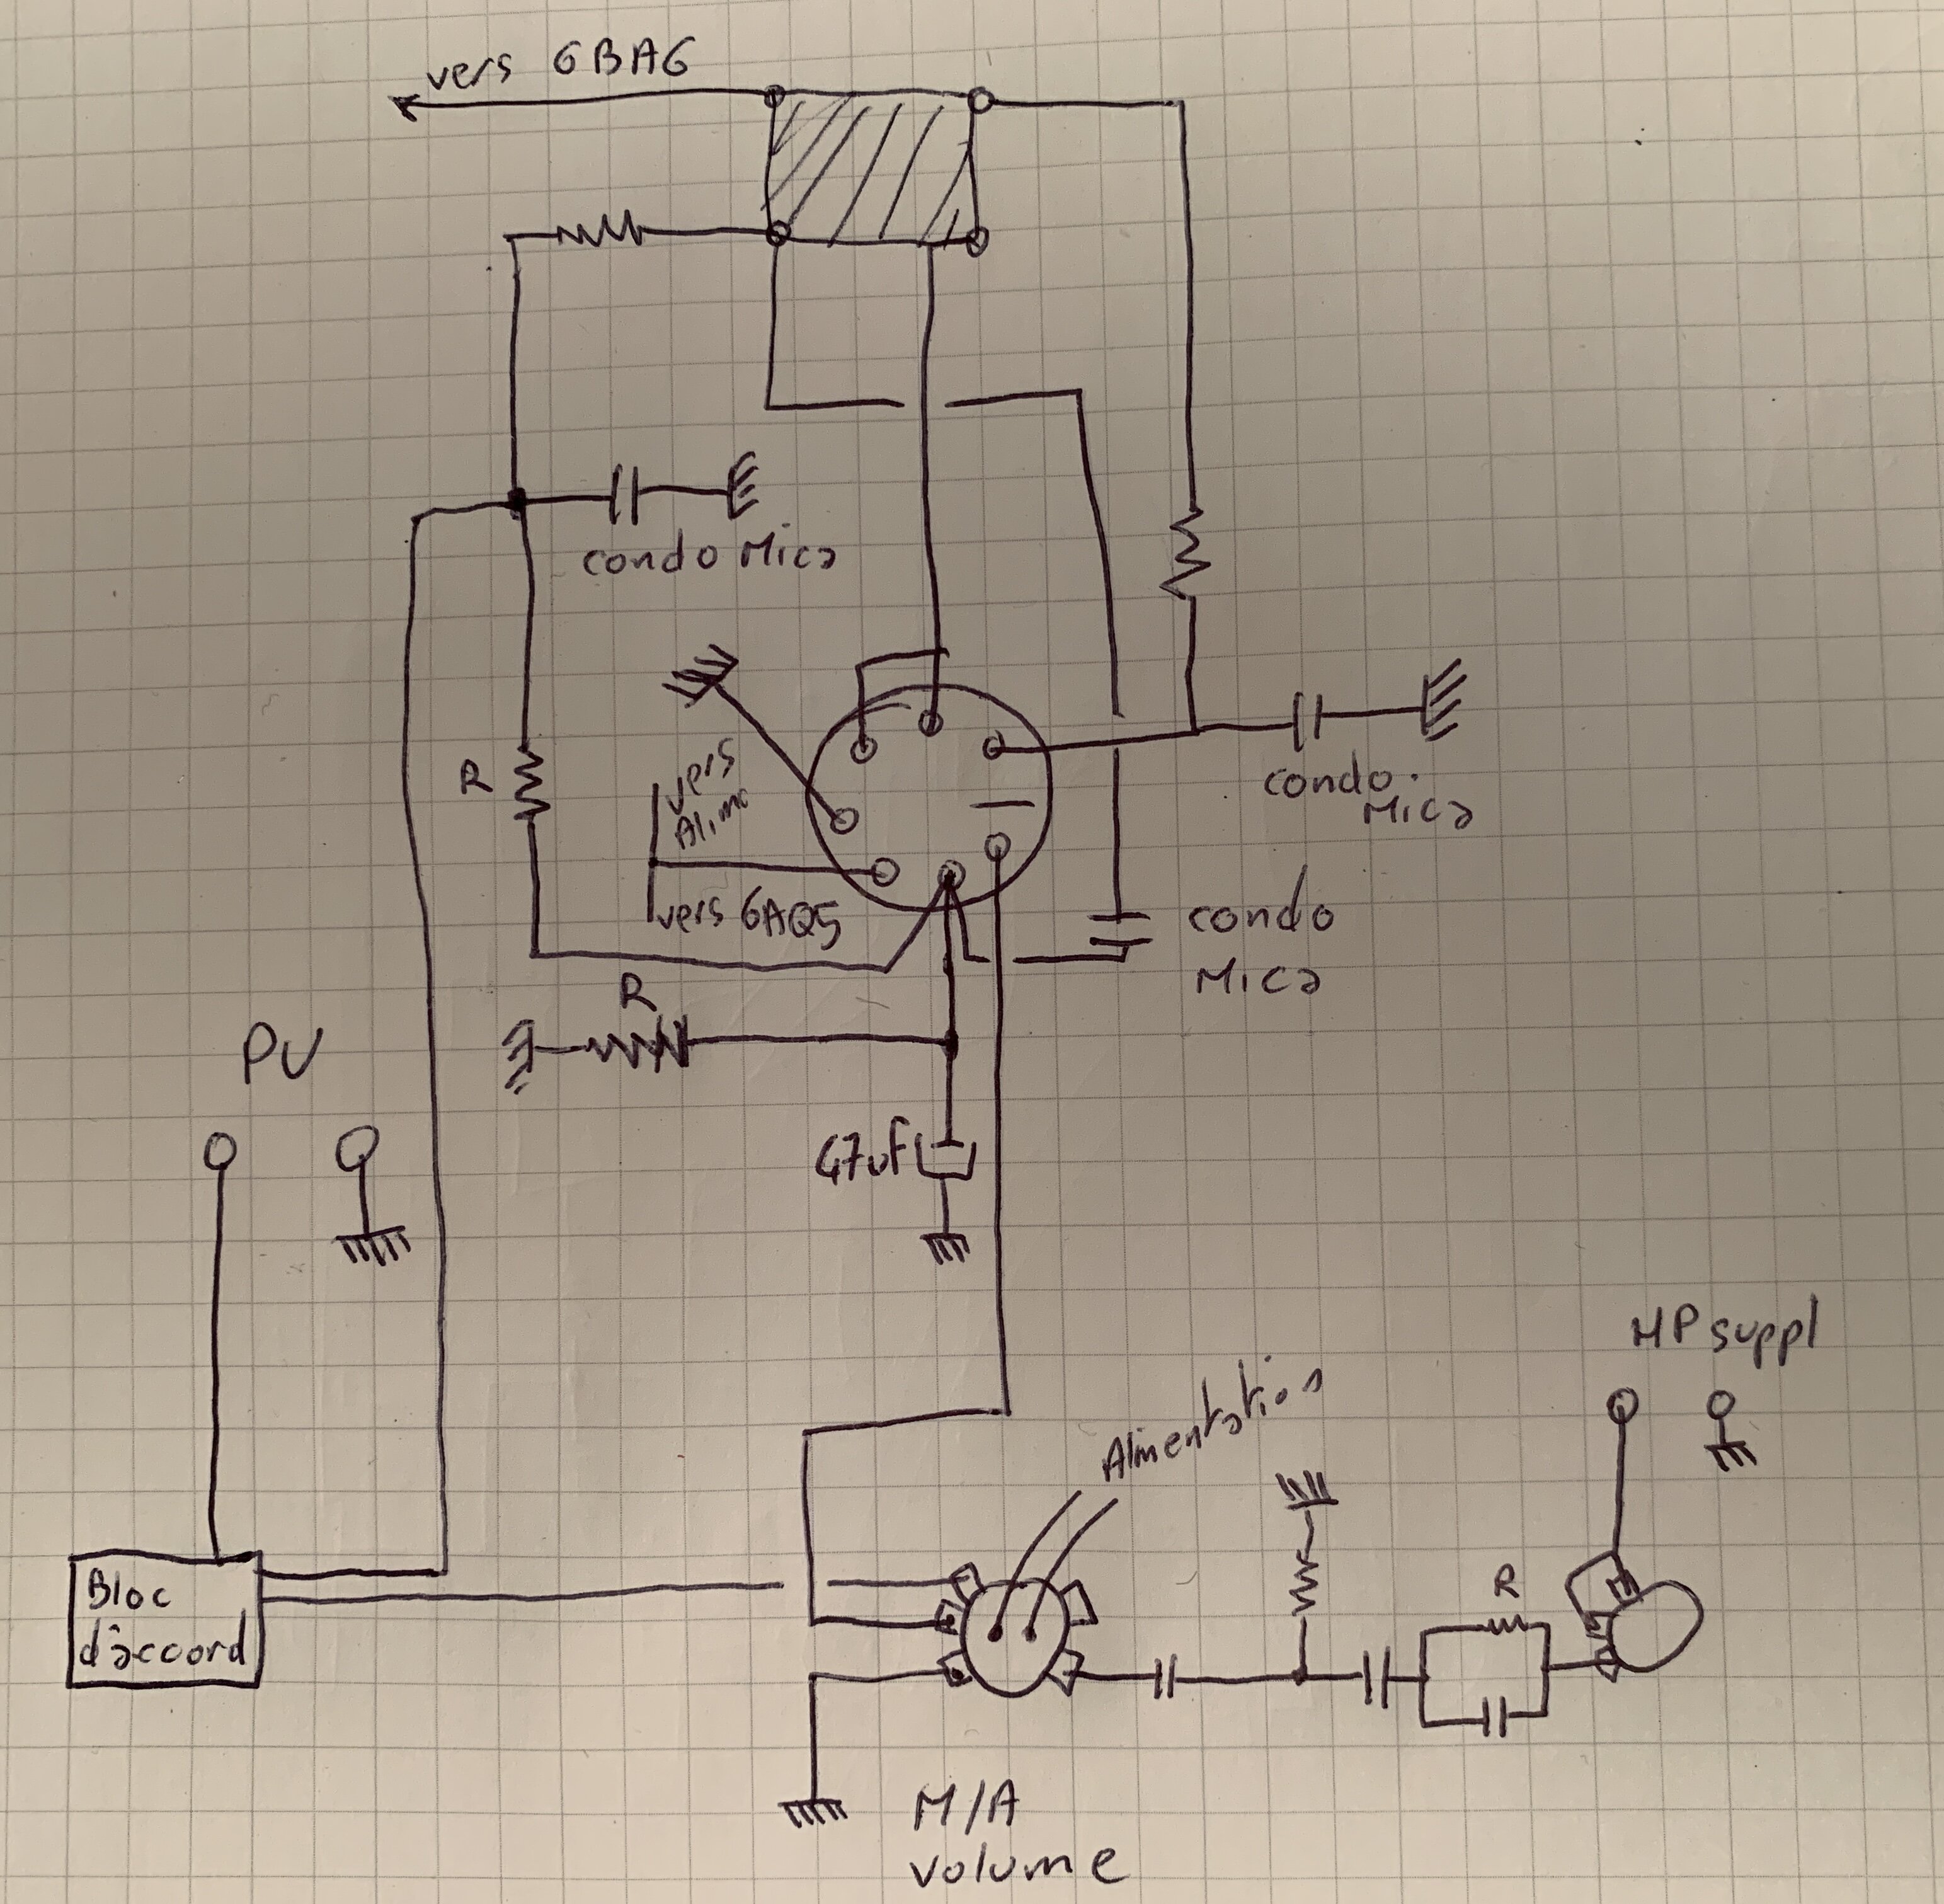 vers 6BA6
condo Mica
R
vers
Alim
vers 6AQ5
condo.
Mica
condo
Mica
R
PU
47uF
HP suppl
Alimentation
Bloc
d'accord
R
M/A
volume